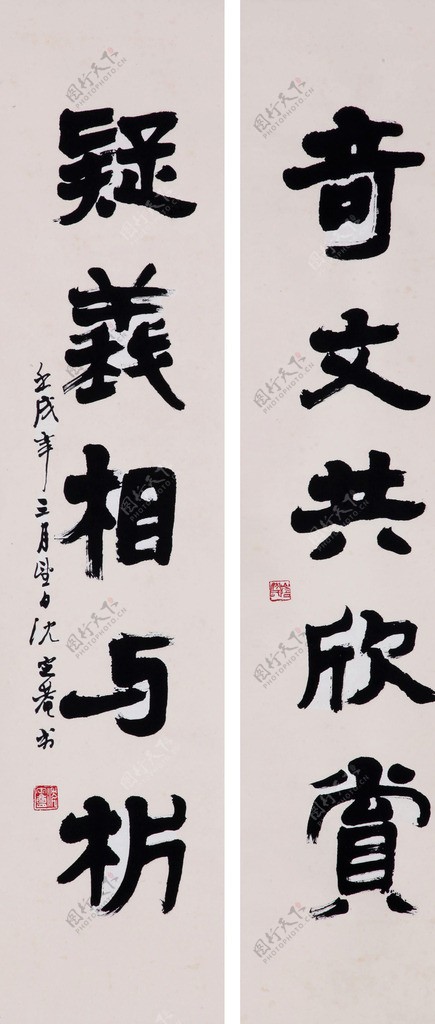 奇文共欣赏
疑義相与析
壬戌年三月望日沈定菴书
图行天下
PHOTOPHOTO.CN